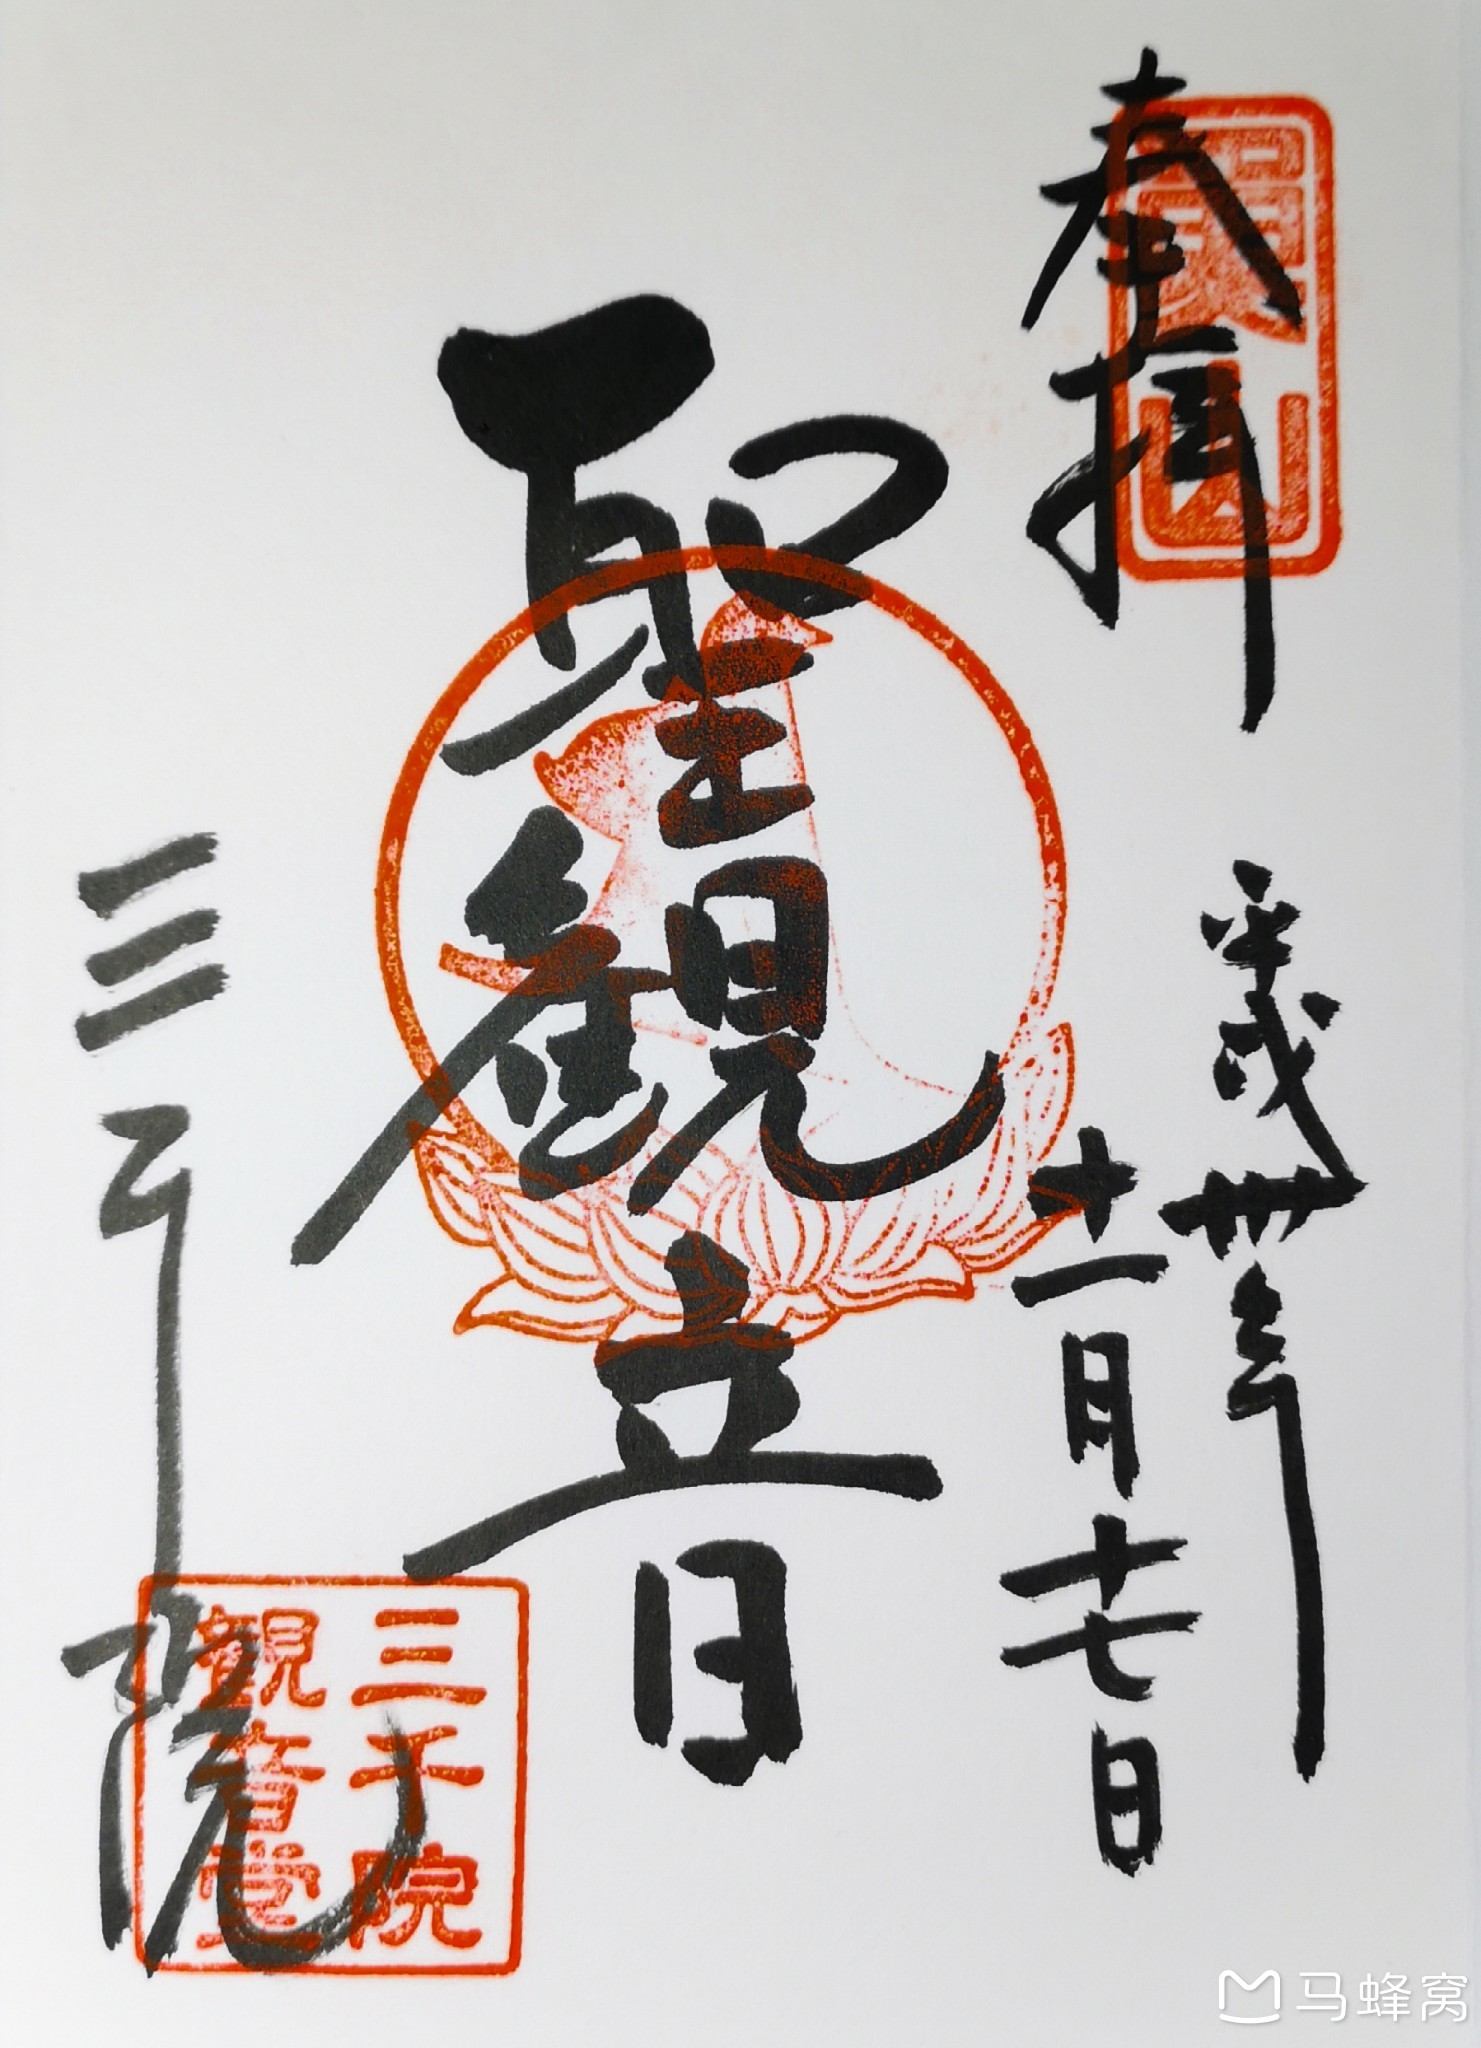 奉拝
平成卅年
十一月十七日
聖観音
三千院
三千院
観音堂
马蜂窝